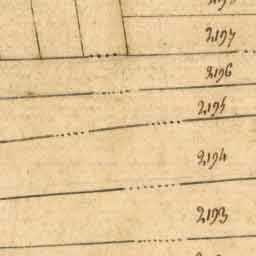 2197
2196
2195
2194
2193